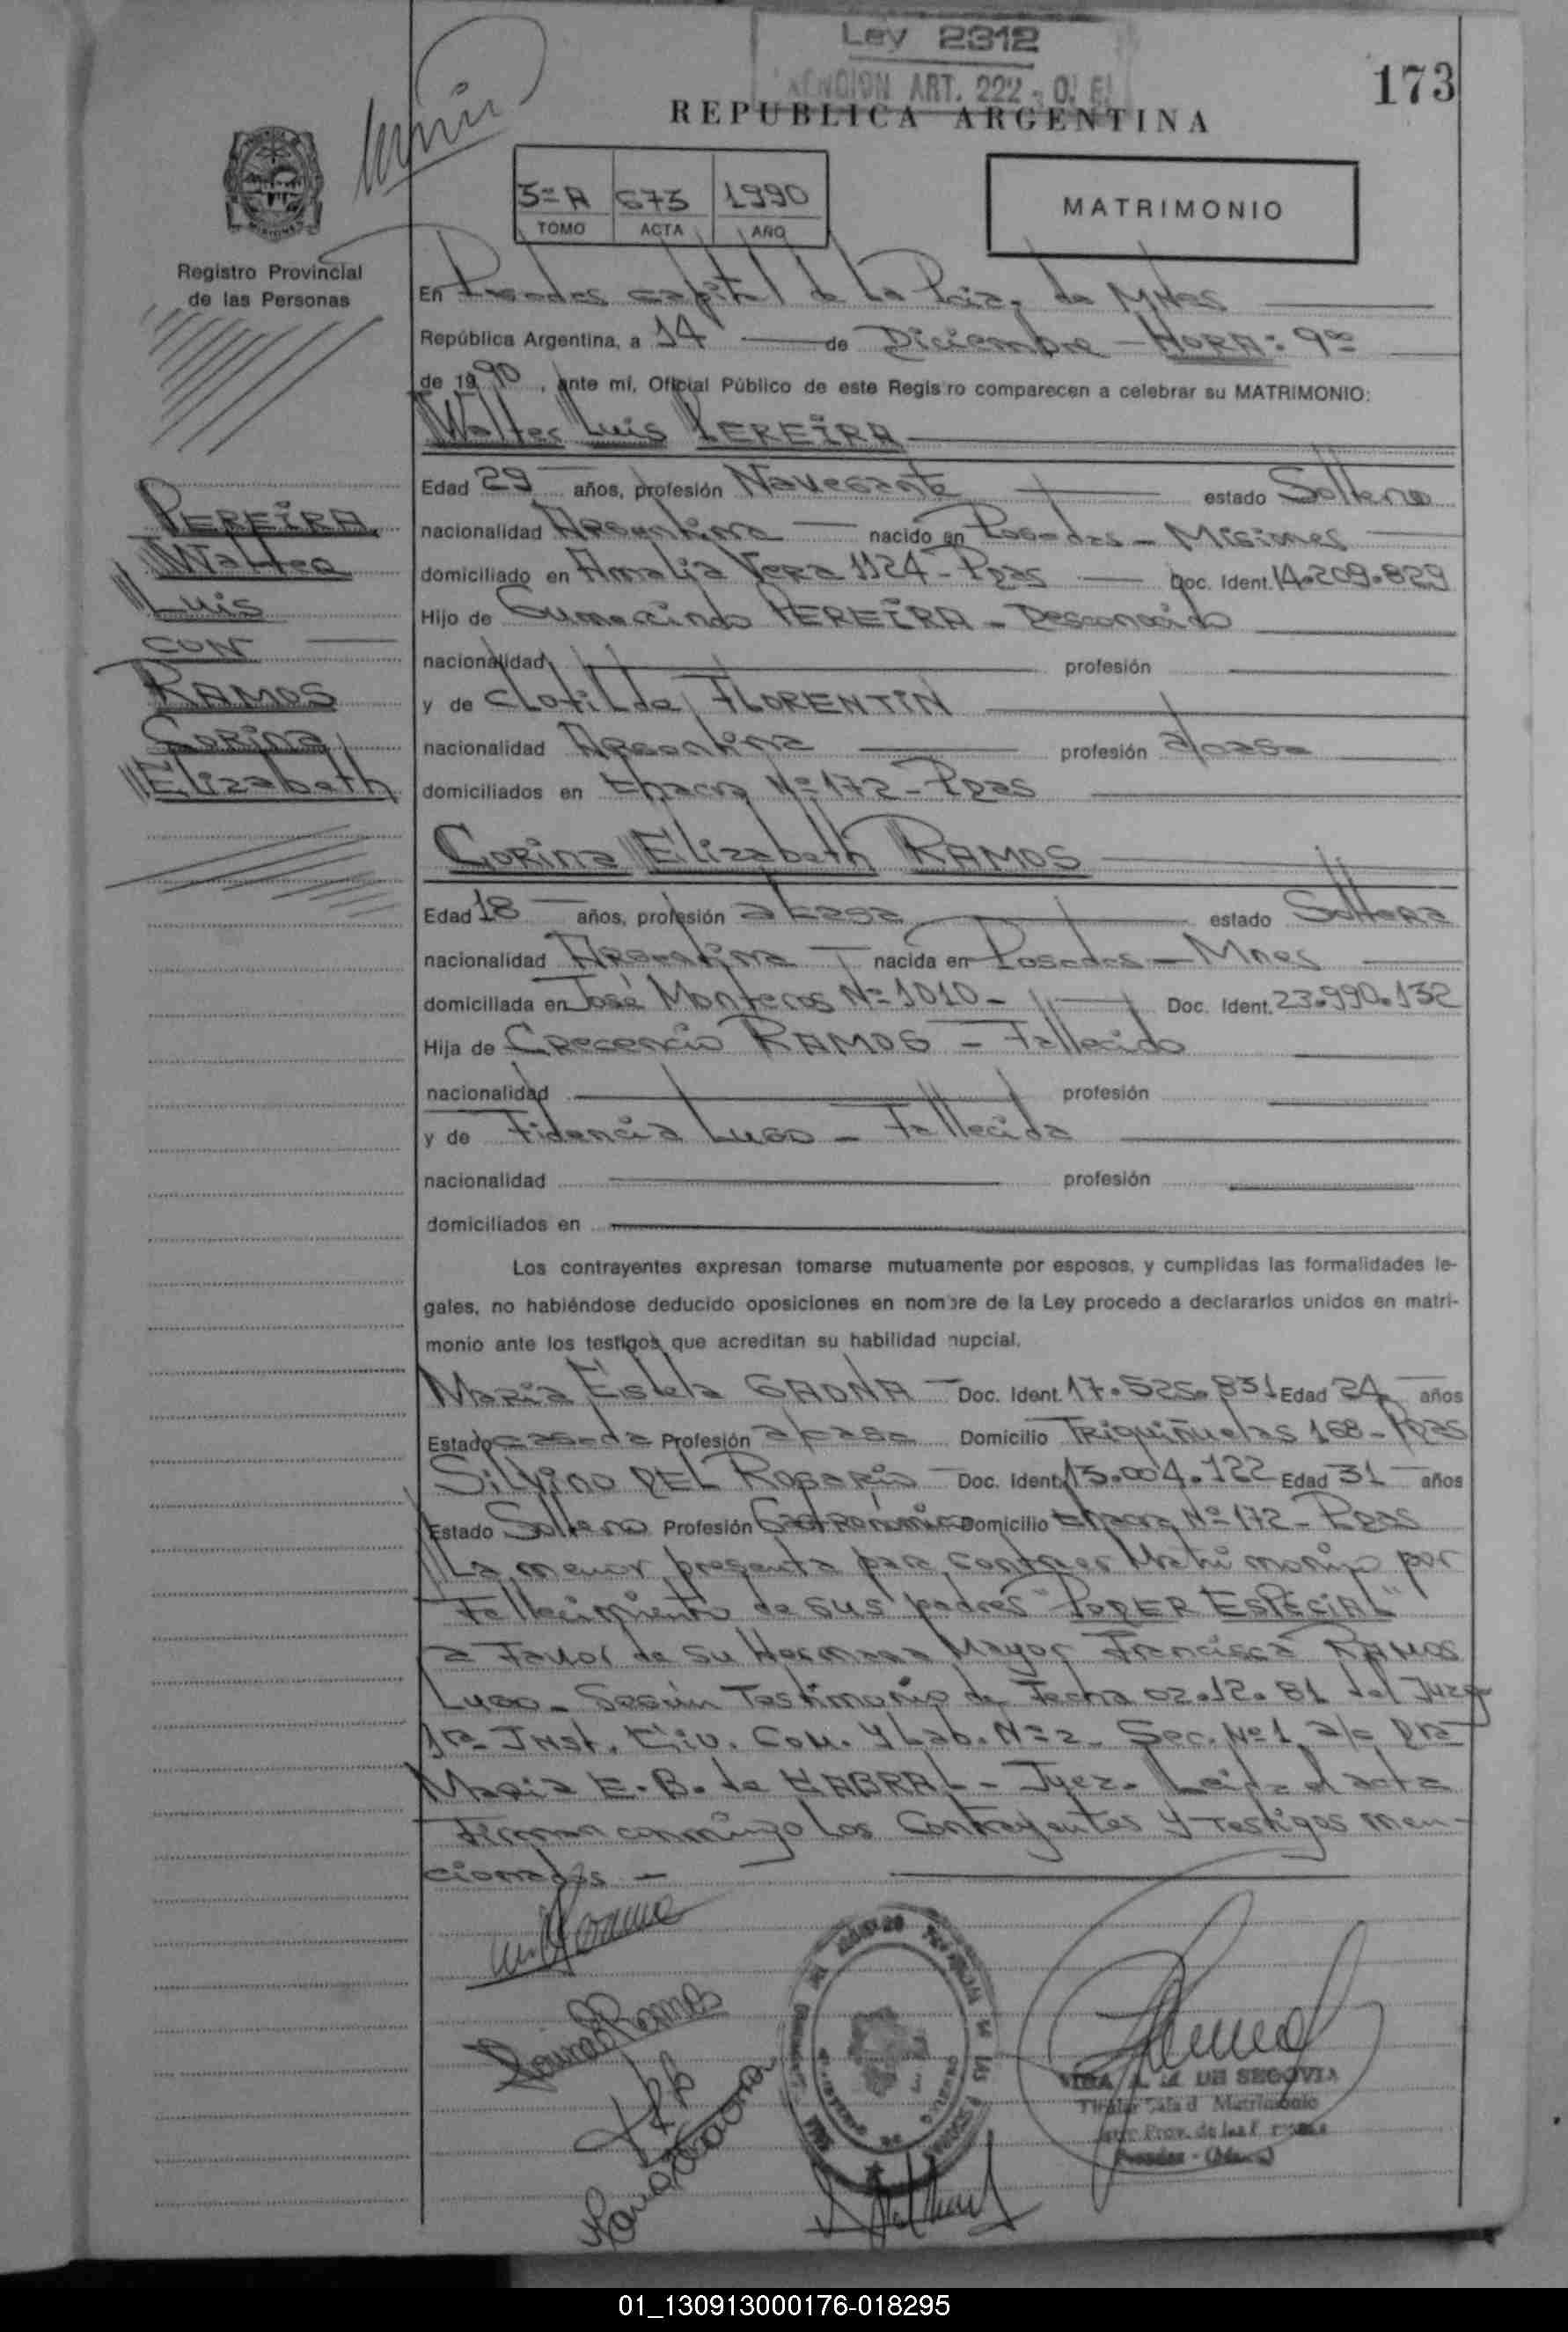 Ley 2312
ART. 222
173
REPUBLICA ARGENTINA
5º A 673 1990
TOMO ACTA AÑO
MATRIMONIO
Registro Provincial
de las Personas
En Posadas capital de la Pcia. de Mnes
República Argentina, a 14 de Diciembre - HORA: 9ºº
de 1990, ante mí, Oficial Público de este Registro comparecen a celebrar su MATRIMONIO:
Walter Luis PEREIRA
Edad 29 años, profesión Navegante estado Soltero
nacionalidad Argentina nacido en Posadas - Misiones
domiciliado en Amalia Vera 1124 - Pdas Doc. Ident. 14.209.829
Hijo de Gumercindo PEREIRA - Desconocido
nacionalidad profesión
y de Clotilde FLORENTIN
nacionalidad Argentina profesión a/casa
domiciliados en Chacra Nº 172 - Pdas
PEREIRA
Walter
Luis
CON
RAMOS
Corina
Elizabeth
Corina Elizabeth RAMOS
Edad 18 años, profesión a/casa estado Soltera
nacionalidad Argentina nacida en Posadas - Mnes
domiciliada en José Monteros Nº 1010 - Doc. Ident. 23.990.132
Hija de Crecencio RAMOS - Fallecido
nacionalidad profesión
y de Fidencia Lugo - Fallecida
nacionalidad profesión
domiciliados en
Los contrayentes expresan tomarse mutuamente por esposos, y cumplidas las formalidades le-
gales, no habiéndose deducido oposiciones en nombre de la Ley procedo a declararlos unidos en matri-
monio ante los testigos que acreditan su habilidad nupcial.
Maria Estela GAONA Doc. Ident. 17.525.831 Edad 24 años
Estado casada Profesión a/casa Domicilio Triquiñuelas 168 - Pdas
Silvino DEL Rosario Doc. Ident. 13.004.122 Edad 31 años
Estado Soltero Profesión Gastronómico Domicilio Chacra Nº 172 - Pdas
La menor presenta para contraer Matrimonio por
Fallecimiento de sus padres "PODER ESPECIAL"
a Favor de su Hermana Mayor Francisca RAMOS
Lugo - Según Testimonio de Fecha 02.12.81 del Juzg
1ra Inst. Civ. Com. y Lab. Nº 2 - Sec. Nº 1 a/c Dra
Maria E. B. de CABRAL - Juez. Leida el acta
Firman conmigo los Contrayentes y Testigos men-
cionados -
DE SEGOVIA
Titular Matrimonio
Prov. de las
Posadas
01_130913000176-018295